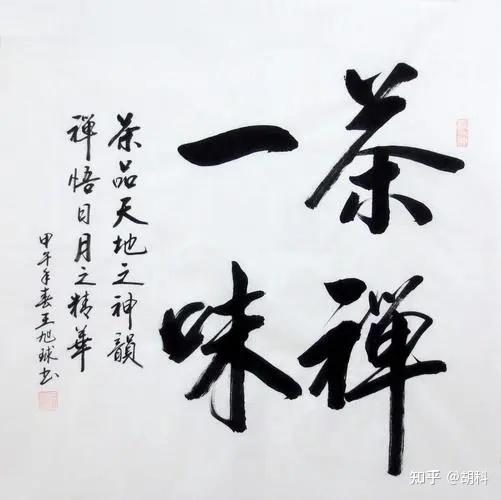 茶禅
一味
茶品天地之神韻
禅悟日月之精華
甲午年春王旭球书
知乎 @胡科